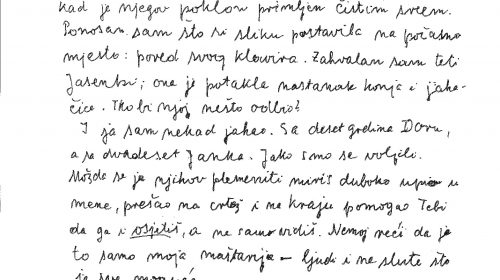 kad je njegov poklon primljen čistim srcem.
Ponosan sam što si sliku postavila na počasno
mjesto: pored svog klavira. Zahvalan sam teti
Jasenki; ona je potakla nastanak konja i jaha-
čice. Tko bi njoj nešto odbio?
I ja sam nekad jahao. Sa deset godina Doru,
a sa dvadeset Janka. Jako smo se voljeli.
Možda se je njihov plemeniti miris duboko upio u
mene, prešao na crtež i na kraju pomogao Tebi
da ga i osjetiš, a ne samo vidiš. Nemoj reći da je
to samo moja maštanja – ljudi i ne slute što
je sve moguće